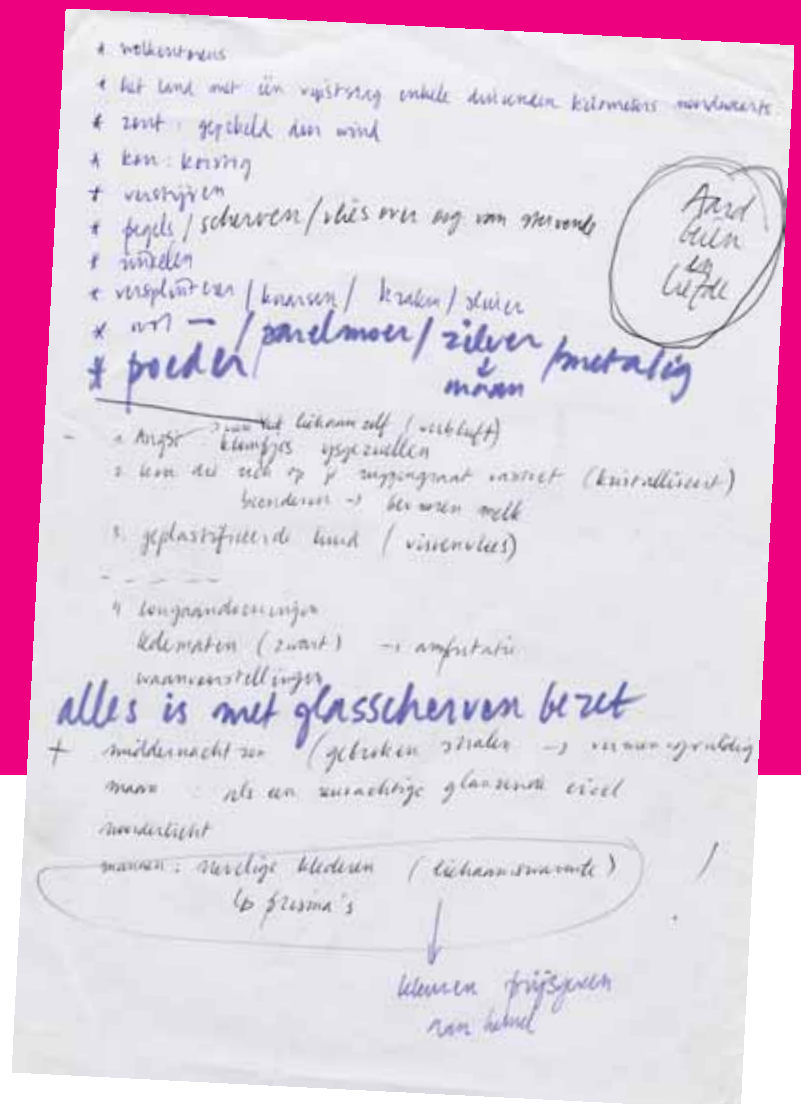 * het land met één vuistslag enkele duizenden kilometers noordwaarts.
* zout : gepekeld door wind
* kou : korstig
* verstijven
* pegels / scherven / vlies over oog van stervende
* rinkelen
* versplinteren / knarsen / kralen / sluier
* / parelmoer / zilver / metalig
↓
maan
* poeder
Aard
beien
en
liefde
1. Angst het lichaam zelf (verbluft)
klompjes ijsgezwellen
2. kou die zich op je ruggengraat vastzet (kristalliseert)
beenderen → bevroren melk
3. geplastificeerde huid (vissenvlies)
4 longaandoeningen
ledematen (zwart) → amputatie
waanvoorstellingen
alles is met glasscherven bezet
+ middernachtzon (gebroken stralen → vermenigvuldig
maan : als een glanzende cirkel
noorderlicht
mannen : nevelige klederen (lichaamswarmte)
↳ prisma's
↓
kleuren prijsgeven
aan hemel